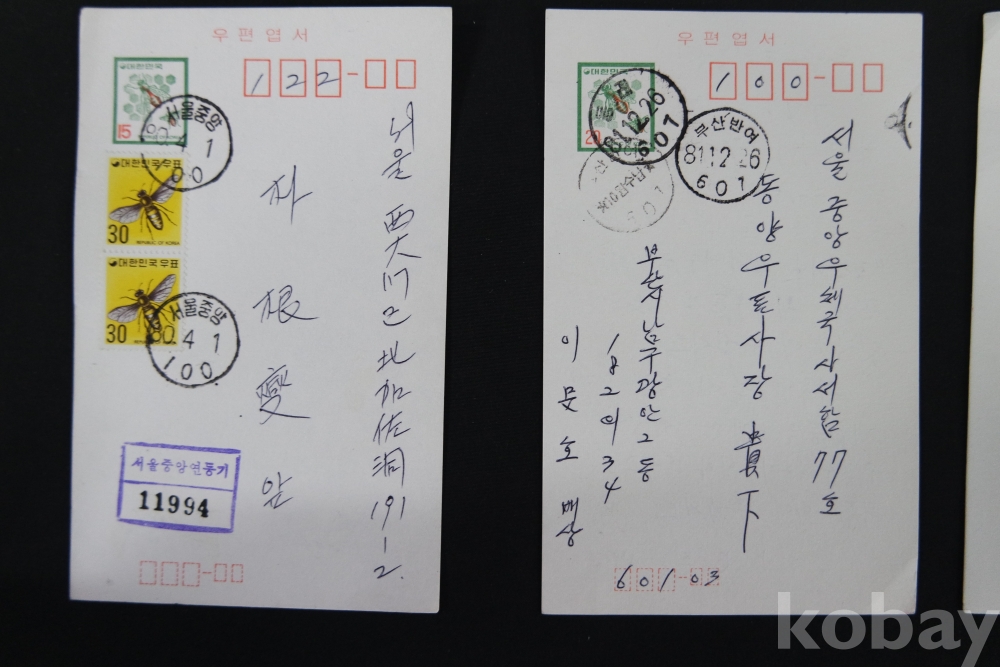 우편엽서
대한민국
15
122
서울중앙
80.4.1
100
대한민국우표
30
REPUBLIC OF KOREA
대한민국우표
30
서울중앙
80.4.1
100
서울 西大門区 北加佐洞 191-2.
朴根燮 앞
서울중앙연등기
11994
우편엽서
대한민국
20
100
81.12.26
601
부산반여
81.12.26
601
서울 중앙우체국 사서함 77호
동양우표사장 貴下
부산시 남구 광안2동
182의34
이문호 배상
601-03
kobay